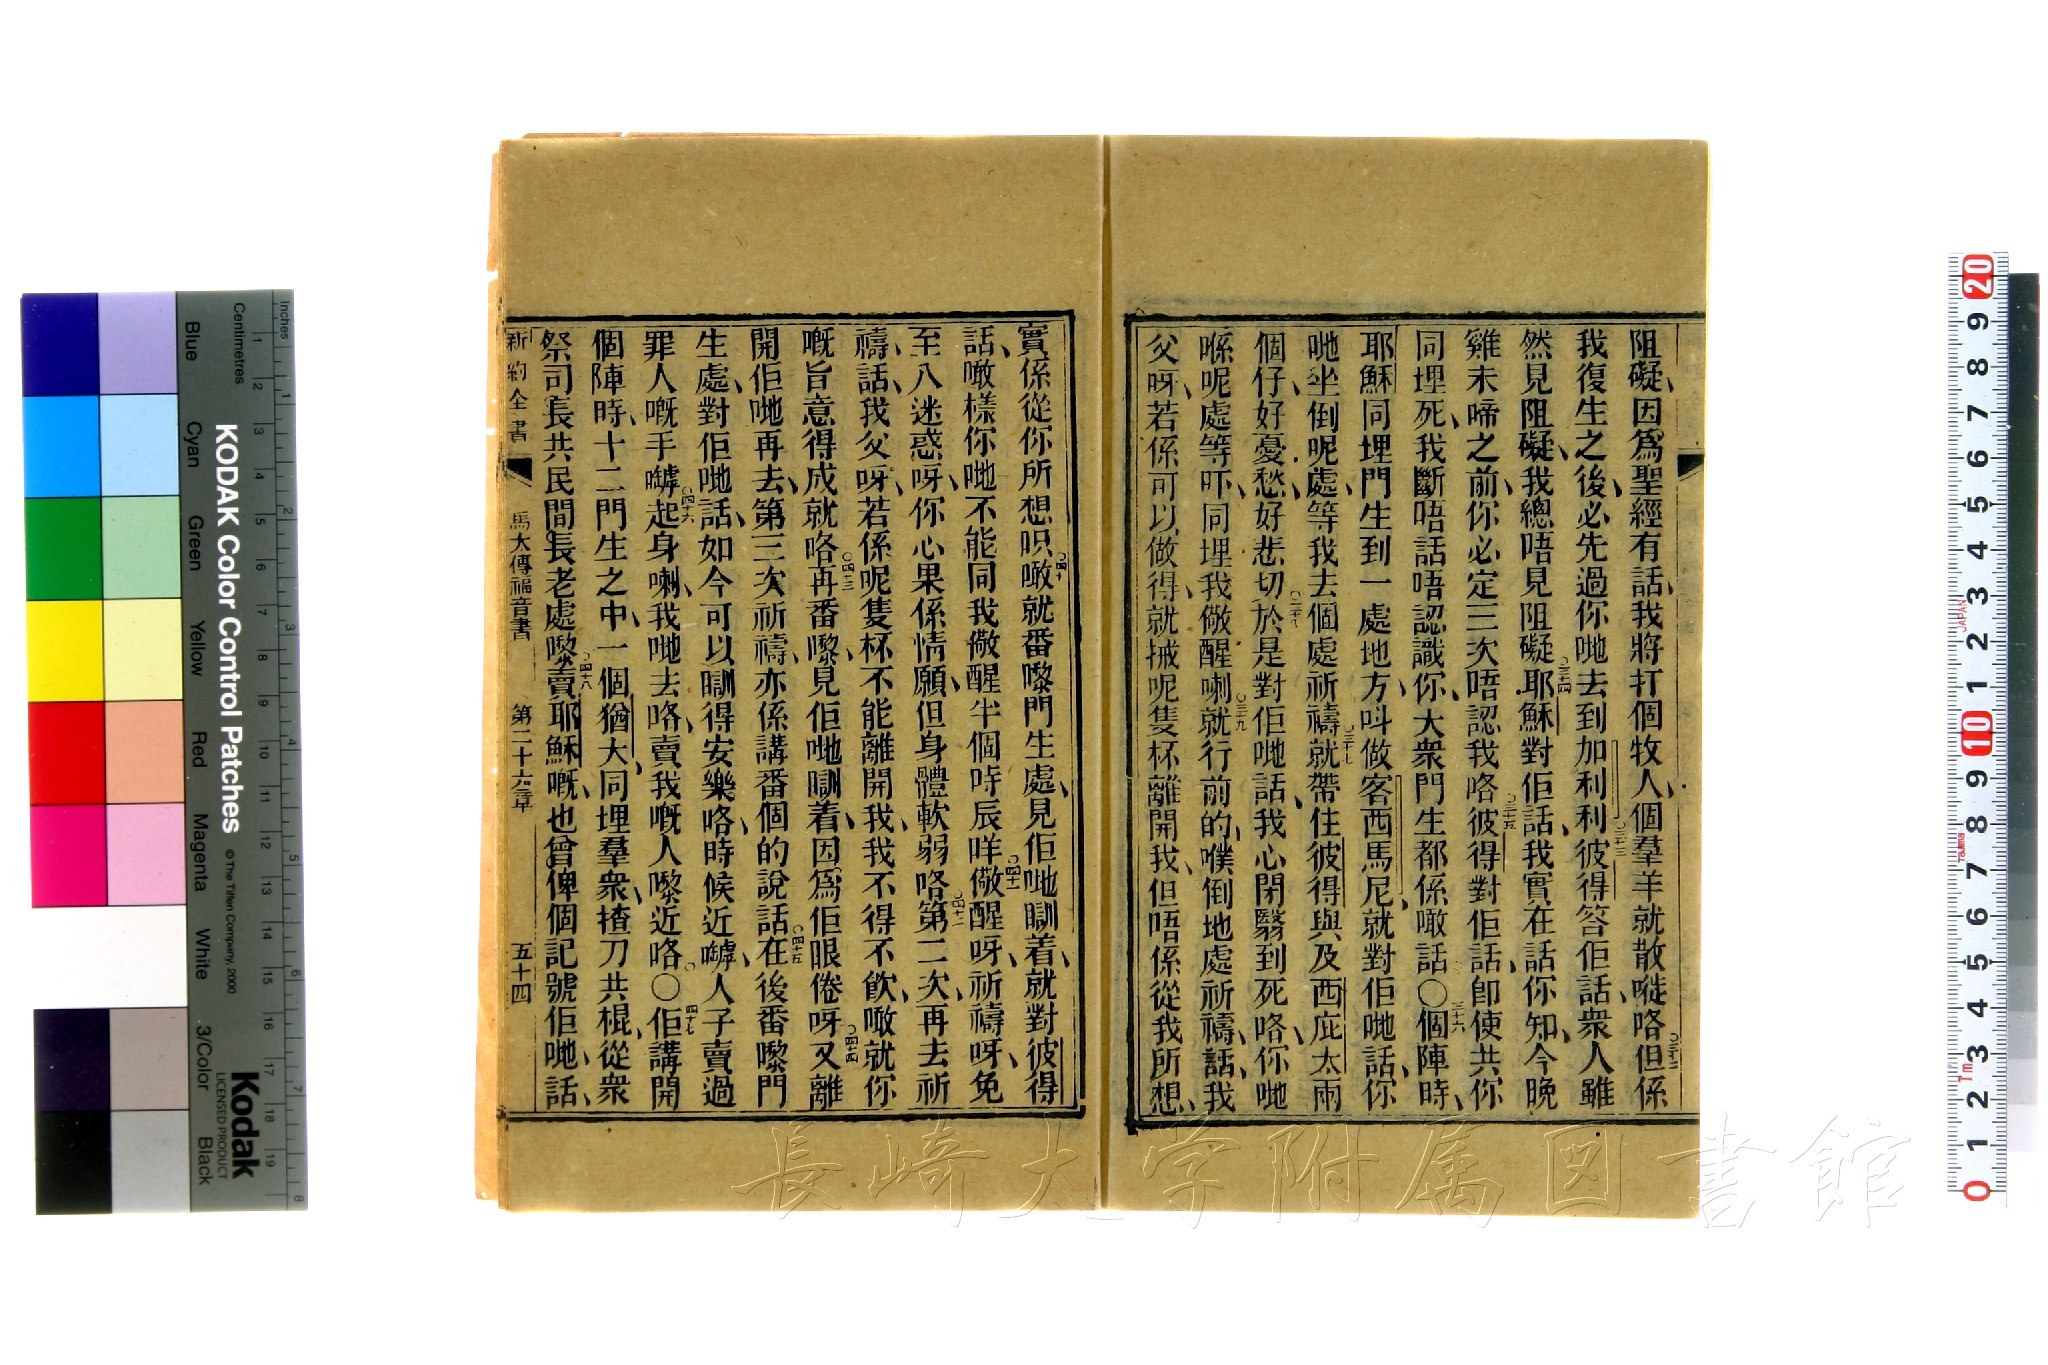 阻礙、因爲聖經有話、我將打個牧人、個羣羊就散嘥咯但係
我復生之後必先過你哋去到加利利彼得答佢話、衆人雖
然見阻礙、我總唔見阻礙耶穌對佢話、我實在話你知、今晚
雞未啼之前、你必定三次唔認我咯彼得對佢話、卽使共你
同埋死、我斷唔話唔認識你、大衆門生都係噉話〇個陣時、
耶穌同埋門生到一處地方、叫做客西馬尼、就對佢哋話、你
哋坐倒呢處、等我去個處祈禱就帶住彼得與及西庇太兩
個仔、好憂愁、好悲切於是對佢哋話、我心閉翳到死咯、你哋
喺呢處等吓、同埋我儆醒喇就行前的、㒒倒地處祈禱、話、我
父呀、若係可以做得、就拔呢隻杯離開我、但唔係從我所想、
實係從你所想呮噉就番嚟門生處、見佢哋瞓着、就對彼得
話、噉樣你哋不能同我儆醒半個時辰咩儆醒呀、祈禱呀、免
至入迷惑呀、你心果係情願、但身體軟弱咯第二次、再去祈
禱、話、我父呀、若係呢隻杯不能離開我、我不得不飲、噉就你
嘅旨意得成就咯再番嚟、見佢哋瞓着、因爲佢眼倦呀又離
開佢哋再去、第三次祈禱、亦係講番個的說話在後番嚟門
生處、對佢哋話、如今可以瞓得安樂咯、時候近嚹、人子賣過
罪人嘅手嚹起身喇、我哋去咯、賣我嘅人嚟近咯〇佢講開
個陣時、十二門生之中、一個猶大、同埋羣衆、揸刀共棍、從衆
祭司長共民間長老處嚟賣耶穌嘅、也曾俾個記號佢哋、話、
新約全書 馬太傳福音書 第二十六章 五十四
長崎大学附属図書館
KODAK Color Control Patches
© The Tiffen Company, 2000
Kodak
LICENSED PRODUCT
Blue Cyan Green Yellow Red Magenta White 3/Color Black
Inches
Centimetres
JAPAN